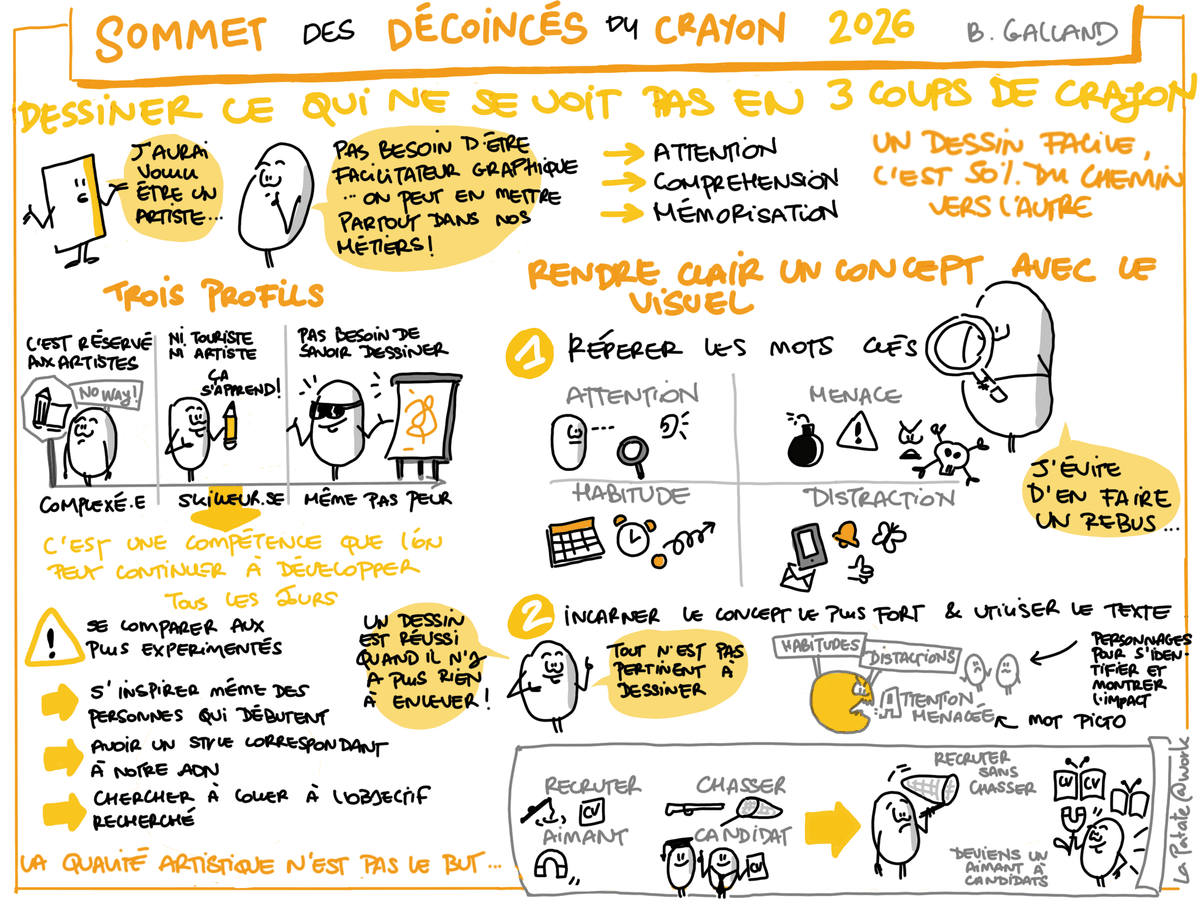 SOMMET DES DÉCOINCÉS DU CRAYON 2026 B. GALLAND
DESSINER CE QUI NE SE VOIT PAS EN 3 COUPS DE CRAYON
J'AURAI
VOULU
ÊTRE UN
ARTISTE...
PAS BESOIN D'ÊTRE
FACILITATEUR GRAPHIQUE
... ON PEUT EN METTRE
PARTOUT DANS NOS
MÉTIERS !
→ ATTENTION
→ COMPREHENSION
→ MÉMORISATION
UN DESSIN FACILE,
C'EST 50% DU CHEMIN
VERS L'AUTRE
TROIS PROFILS
C'EST RÉSERVÉ
AUX ARTISTES
NO WAY!
COMPLEXÉ.E
NI TOURISTE
NI ARTISTE
ÇA
S'APPREND!
S'KILLEUR.SE
PAS BESOIN DE
SAVOIR DESSINER
MÊME PAS PEUR
C'EST UNE COMPÉTENCE QUE L'ON
PEUT CONTINUER À DÉVELOPPER
TOUS LES JOURS
!
SE COMPARER AUX
PLUS EXPERIMENTÉS
S'INSPIRER MÊME DES
PERSONNES QUI DÉBUTENT
AVOIR UN STYLE CORRESPONDANT
À NOTRE ADN
CHERCHER À COLLER À L'OBJECTIF
RECHERCHÉ
LA QUALITÉ ARTISTIQUE N'EST PAS LE BUT...
RENDRE CLAIR UN CONCEPT AVEC LE
VISUEL
1 RÉPERER LES MOTS CLÉS
ATTENTION
MENACE
!
HABITUDE
DISTRACTION
J'ÉVITE
D'EN FAIRE
UN REBUS...
2 INCARNER LE CONCEPT LE PLUS FORT & UTILISER LE TEXTE
UN DESSIN
EST RÉUSSI
QUAND IL N'Y
A PLUS RIEN
À ENLEVER !
TOUT N'EST PAS
PERTINENT À
DESSINER
HABITUDES
DISTACTIONS
ATTENTION
MENACÉE
MOT PICTO
PERSONNAGES
POUR S'IDEN-
TIFIER ET
MONTRER
L'IMPACT
RECRUTER
CV
CHASSER
AIMANT
CANDIDAT
CV
RECRUTER
SANS
CHASSER
CV CV
DEVIENS UN
AIMANT À
CANDIDATS
La Patate@work